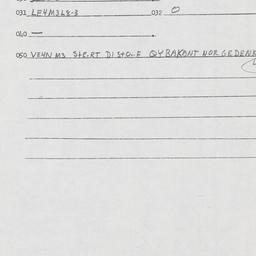 031 LE4M3L8-3 032 0
040 —
050 VE4N M3 St&RT DISt0LE QYBAKANT NOR GEDENK